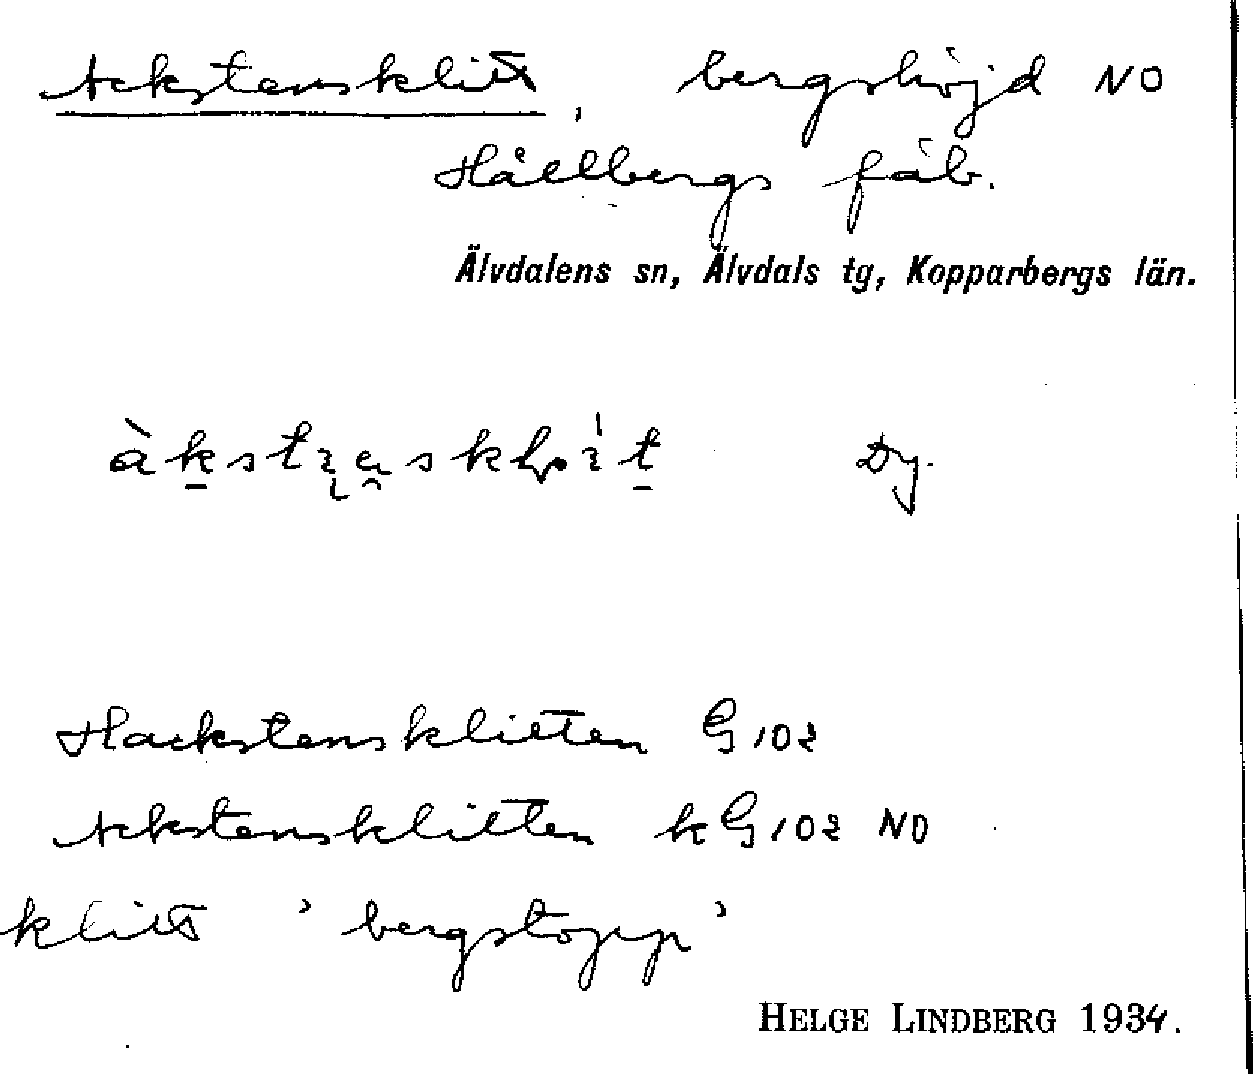 Ackstensklitt, bergshöjd NO
Hållbergs fäb.
Älvdalens sn, Älvdals tg, Kopparbergs län.
Dy.
Hackstensklitten G 102
Ackstensklitten kG 102 NO
klitt 'bergstopp'
HELGE LINDBERG 1934.